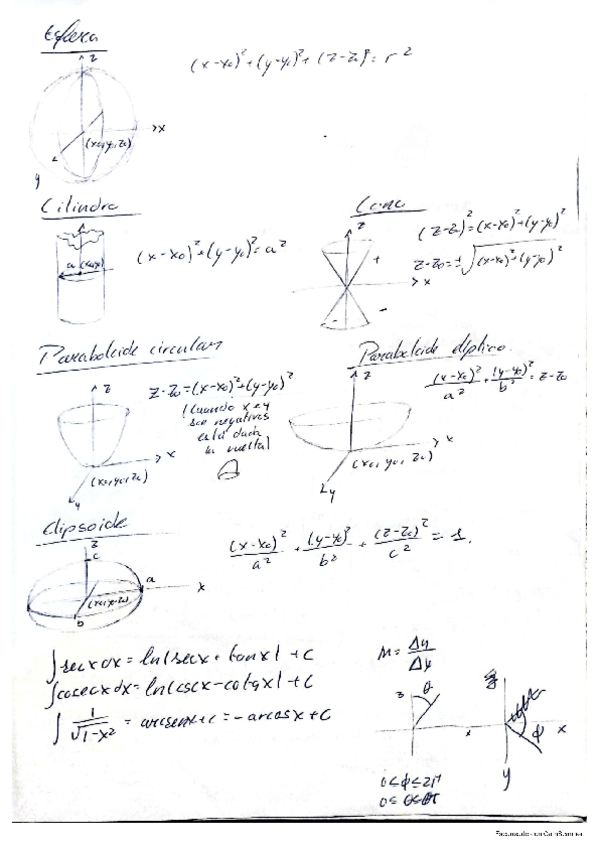 Esfera
(x-x₀)²+(y-y₀)²+(z-z₀)²=r²
z
x
(x₀,y₀,z₀)
y
Cilindro
(x-x₀)²+(y-y₀)²=a²
a (x₀,y₀)
Cono
(z-z₀)²=(x-x₀)²+(y-y₀)²
z-z₀=±√(x-x₀)²+(y-y₀)²
z
+
x
-
-
Paraboloide circular
z-z₀=(x-x₀)²+(y-y₀)²
(Cuando x e y
son negativos
está dada
la vuelta)
z
x
(x₀,y₀,z₀)
y
Paraboloide elíptico
(x-x₀)²/a² + (y-y₀)²/b² = z-z₀
z
x
(x₀, y₀, z₀)
y
Elipsoide
(x-x₀)²/a² + (y-y₀)²/b² + (z-z₀)²/c² = 1.
z
c
a
x
(x₀,y₀,z₀)
b
∫secxdx = ln|secx+tanx|+C
∫cosecxdx = ln|cscx-cotgx|+C
∫ 1/√1-x² = arcsenx+c = -arcosx+C
z
θ
x
x
ϕ
y
0≤ϕ≤2π
0≤θ≤π
Escaneado con CamScanner